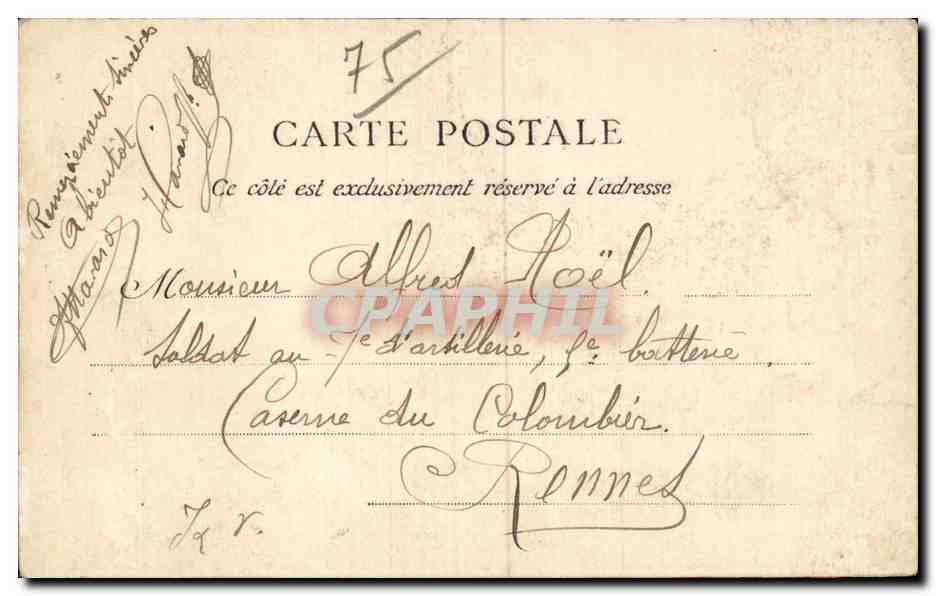 75
Remerciements sincères
A bientôt
CARTE POSTALE
Ce côté est exclusivement réservé à l'adresse
Monsieur Alfred Noël.
CPAPHIL
Soldat au 7e d'artillerie, 5e batterie.
Caserne du Colombier.
Rennes